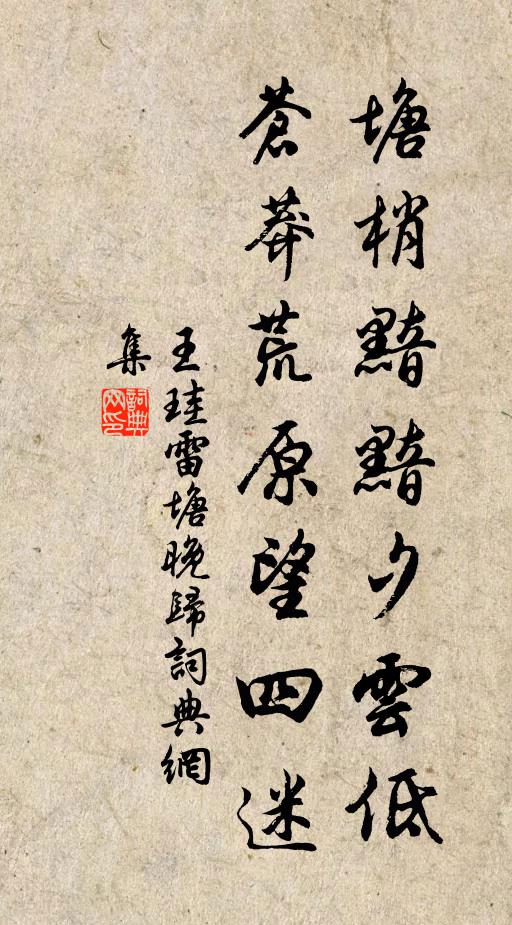 塘梢黯黯夕雲低
蒼莽荒原望四迷
王珪雷塘晚歸詞典網
集
詞典
網印